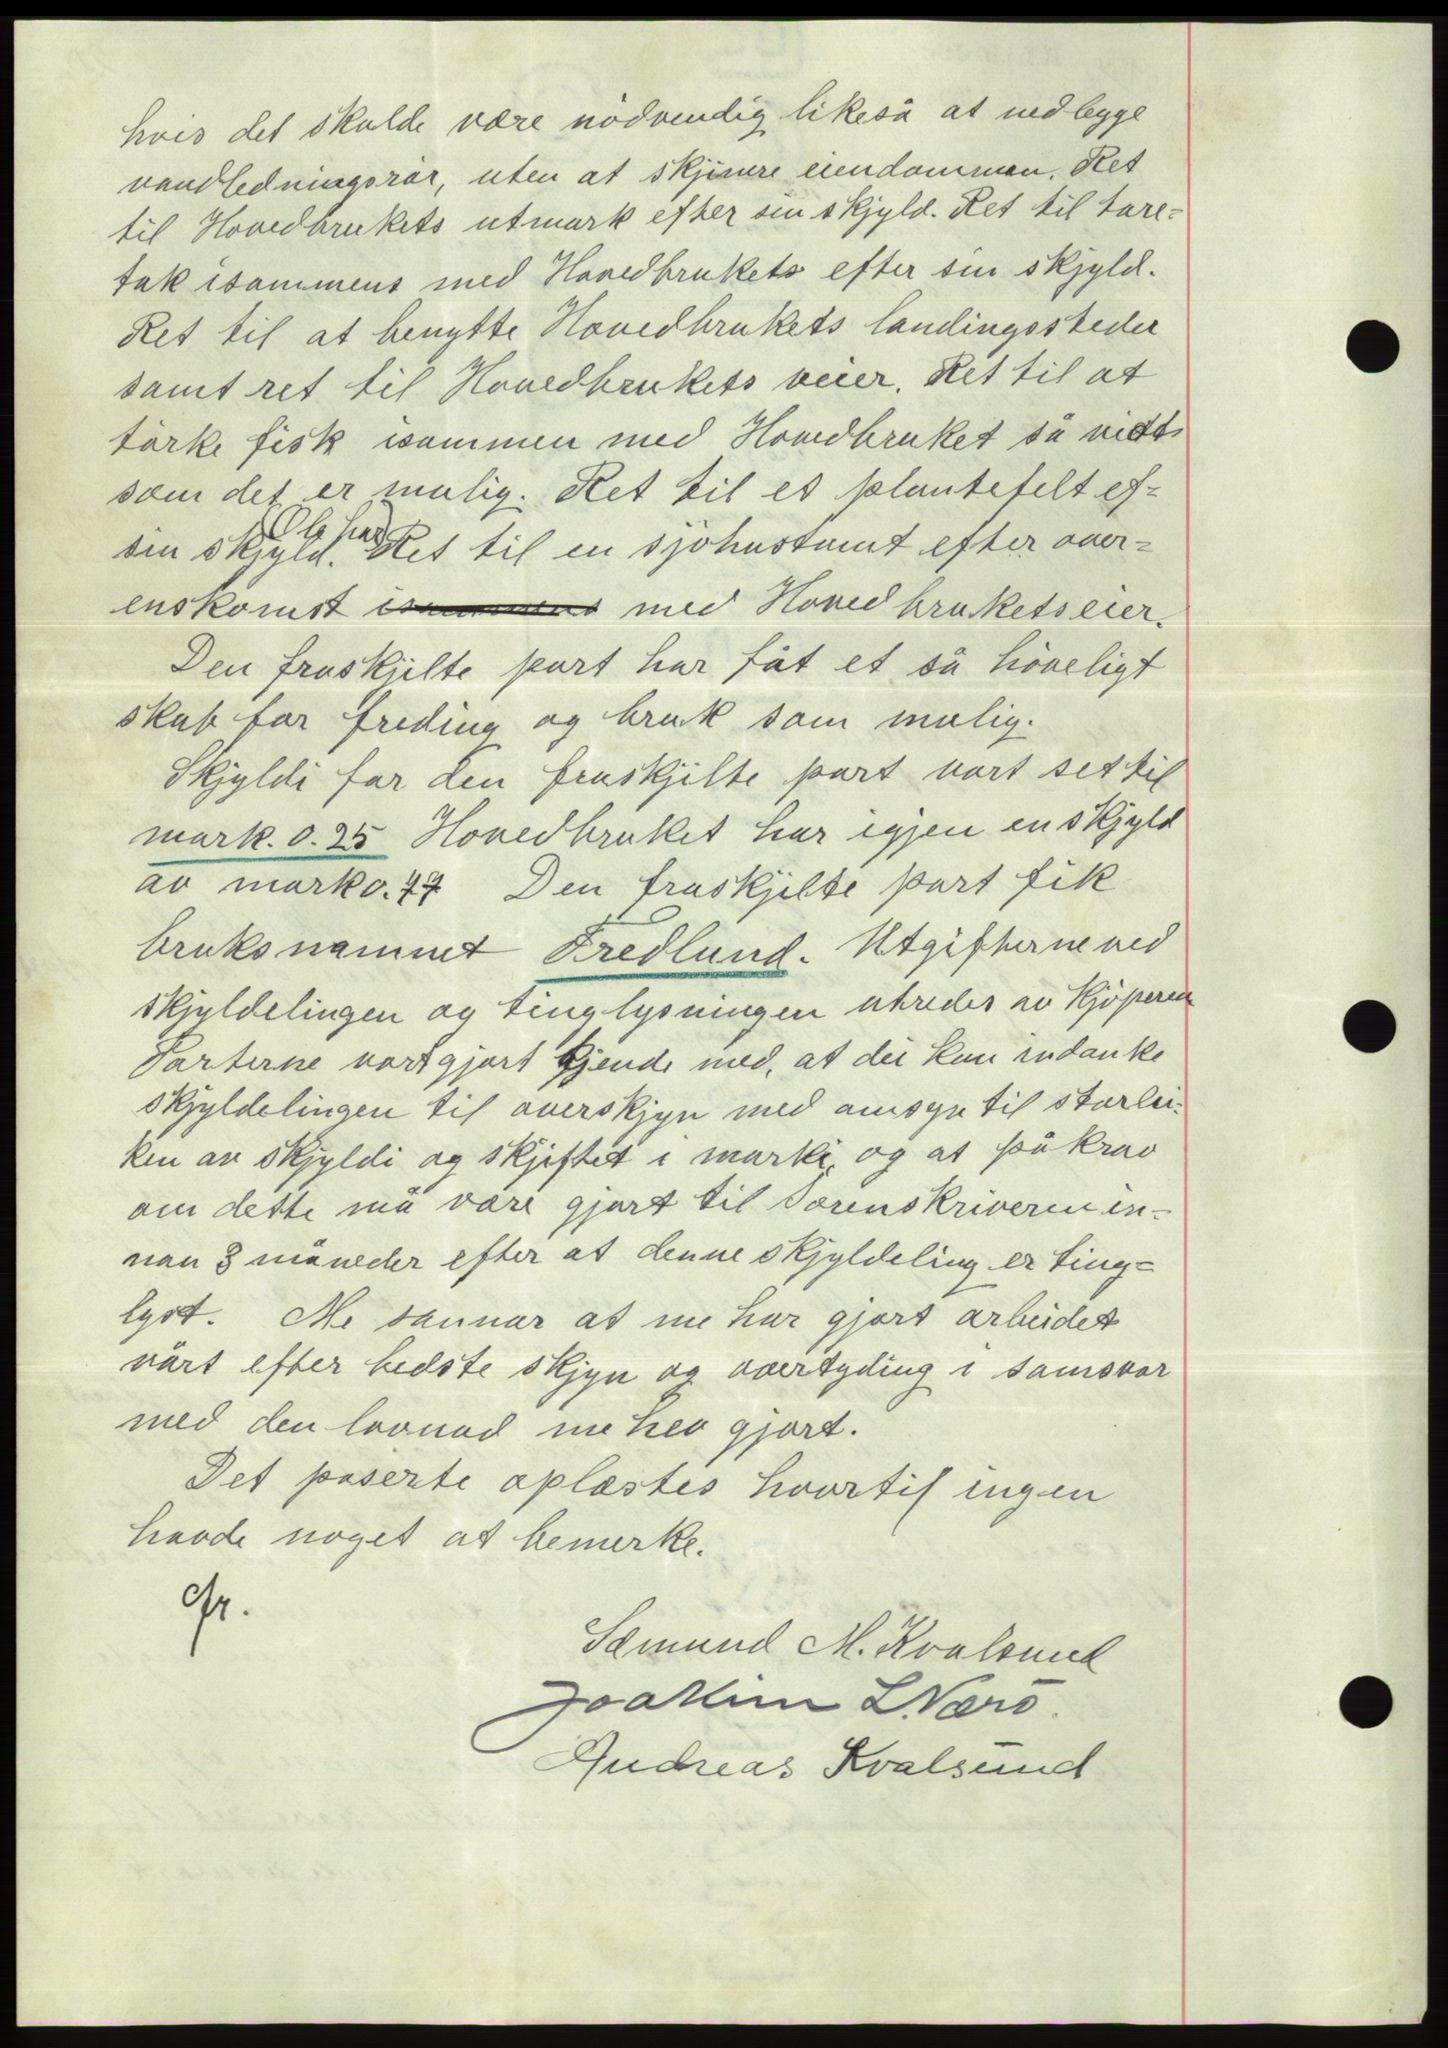 hvis det skulde være nödvendig likeså at nedlegge
vandledningsrör, uten at skjemere eiendommen. Ret
til Hovedbrukets utmark efter sin skjyld. Ret til tare-
tak isammens med Hovedbrukets efter sin skjyld.
Ret til at benytte Hovedbrukets landingssteder
samt ret til Hovedbrukets veier. Ret til at
törke fisk isammen med Hovedbruket så vidt
som det er mulig. Ret til et plantefelt ef-
sin skjyld. (Ole har) Ret til en sjöhustomt efter over-
enskomst isammens med Hovedbrukets eier.
Den fraskjilte part har fåt et så höveligt
skap for freding og bruk som mulig.
Skjyldi for den fraskjilte part vart set til
mark. 0.25 Hovedbruket har igjen en skjyld
av mark 0.77 Den fraskjilte part fik
bruksnamnet Fredlund. Utgifterne ved
skjyldelingen og tinglysningen utredes av kjöperen
Parterne vart gjort kjende med, at dei kan indanke
skjyldelingen til överskjyn med omsyn til storlei-
ken av skjyldi og skjiftet i marki, og at på krav
om dette må være gjort til Sorenskriveren in-
nan 3 måneder efter at denne skjyldeling er ting-
lyst. Me sannar at me har gjort arbeidet
vårt efter bedste skjyn og overtyding i samsvar
med den lovnad me hev gjort.
Det paserte oplæstes hvortil ingen
havde noget at bemerke.
Gr.
Sæmund M. Kvalsund
Joakim L. Nærö.
Andreas Kvalsund